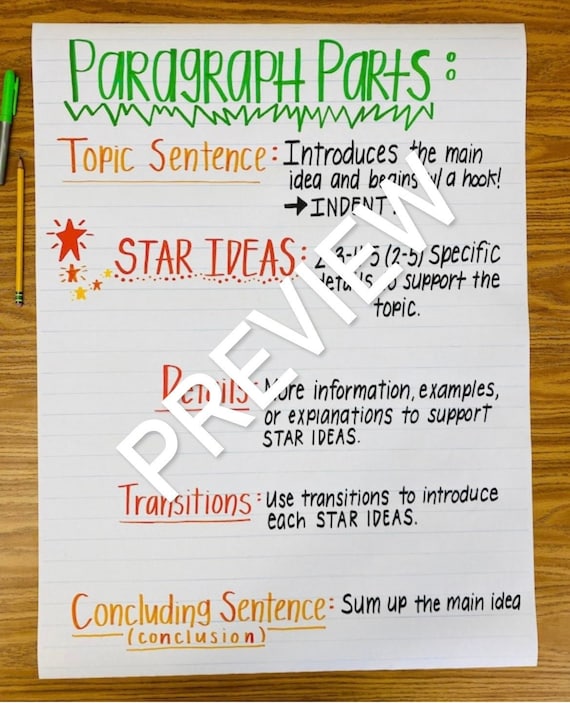 Paragraph Parts:
Topic Sentence: Introduces the main
idea and begins w/ a hook!
→ INDENT
STAR IDEAS: 2-3-4-5 (2-5) Specific
details to support the
topic.
Details: More information, examples,
or explanations to support
STAR IDEAS.
Transitions: Use transitions to introduce
each STAR IDEAS.
Concluding Sentence: Sum up the main idea
(conclusion)
PREVIEW